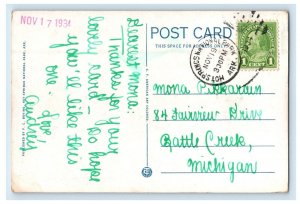 NOV 17 1934
POST CARD
THIS SPACE FOR ADDRESS ONLY
Dearest Mona:
Thanks for your
lovely card - Do hope
you'll like this
one, too.
Love
Audrey
HOT SPRINGS
ARK.
NOV
330PM
1 CENT 1
Mona
84 Fairview Drive
Battle Creek,
Michigan